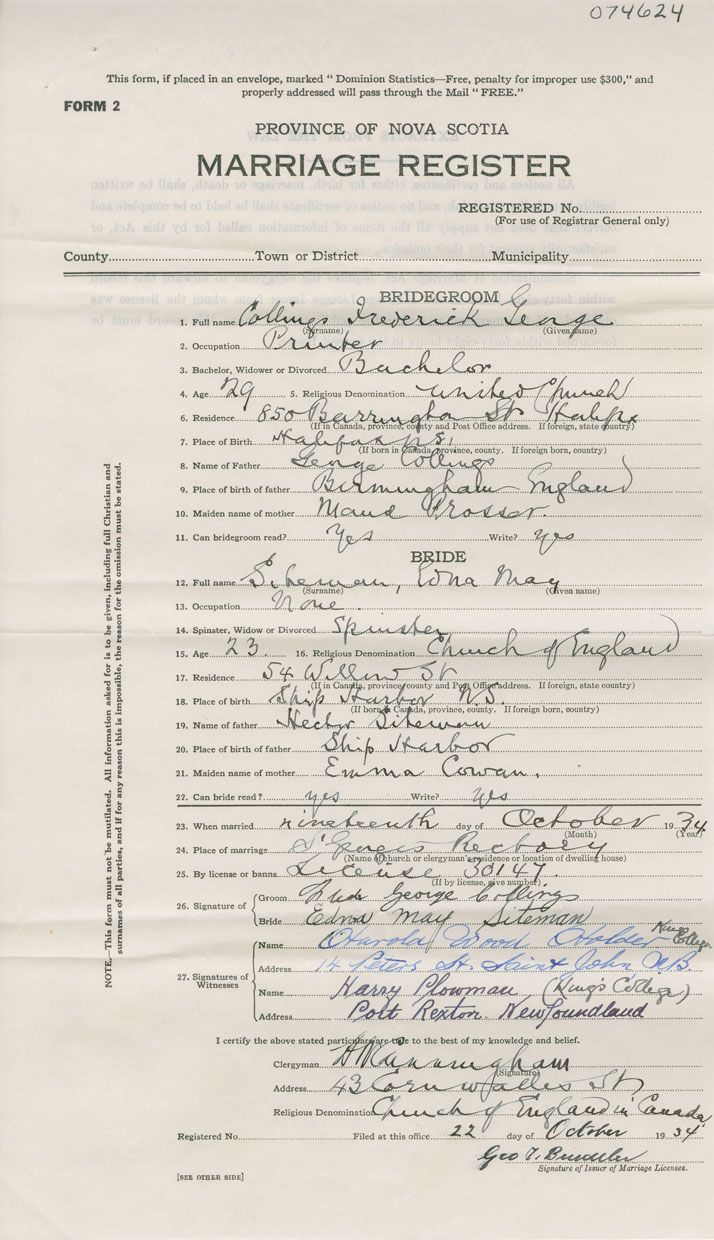 074624
This form, if placed in an envelope, marked "Dominion Statistics—Free, penalty for improper use $300," and
properly addressed will pass through the Mail "FREE."
FORM 2
PROVINCE OF NOVA SCOTIA
MARRIAGE REGISTER
REGISTERED No.
(For use of Registrar General only)
County Town or District Municipality
BRIDEGROOM
1. Full name Collings Frederick George
(Surname) (Given name)
2. Occupation Printer
3. Bachelor, Widower or Divorced Bachelor
4. Age 29 5. Religious Denomination United Church
6. Residence 850 Barrington St Halifax
(If in Canada, province, county and Post Office address. If foreign, state country)
7. Place of Birth Halifax N.S.
(If born in Canada, province, county. If foreign born, country)
8. Name of Father George Collings
9. Place of birth of father Birmingham England
10. Maiden name of mother Maud Prosser.
11. Can bridegroom read? Yes Write? Yes
BRIDE
12. Full name Siteman, Edna May
(Surname) (Given name)
13. Occupation None.
14. Spinster, Widow or Divorced Spinster
15. Age 23. 16. Religious Denomination Church of England
17. Residence 54 Willow St
(If in Canada, province county and Post Office address. If foreign, state country)
18. Place of birth Ship Harbor N.S.
(If born in Canada, province, county. If foreign born, country)
19. Name of father Hector Siteman
20. Place of birth of father Ship Harbor
21. Maiden name of mother Emma Cowan.
22. Can bride read? yes Write? yes
23. When married nineteenth day of October 1934
(Month) (Year)
24. Place of marriage St Georges Rectory
(Name of church or clergyman's residence or location of dwelling house)
25. By license or banns License 30147.
(If by license, give number)
26. Signature of Groom George Collings
Bride Edna May Siteman
27. Signatures of Witnesses
Name Harold Wood Holder Kings College.
Address 14 Peters St. Saint John N.B.
Name Harry Plowman (King's College)
Address Port Rexton. Newfoundland
I certify the above stated particulars are true to the best of my knowledge and belief.
Clergyman
(Signature)
Address 43 Cornwallis St.
Religious Denomination Church of England in Canada
Registered No. Filed at this office 22 day of October 1934
Geo T.
Signature of Issuer of Marriage Licenses.
[SEE OTHER SIDE]
NOTE.—This form must not be mutilated. All information asked for is to be given, including full Christian and
surnames of all parties, and if for any reason this is impossible, the reason for the omission must be stated.